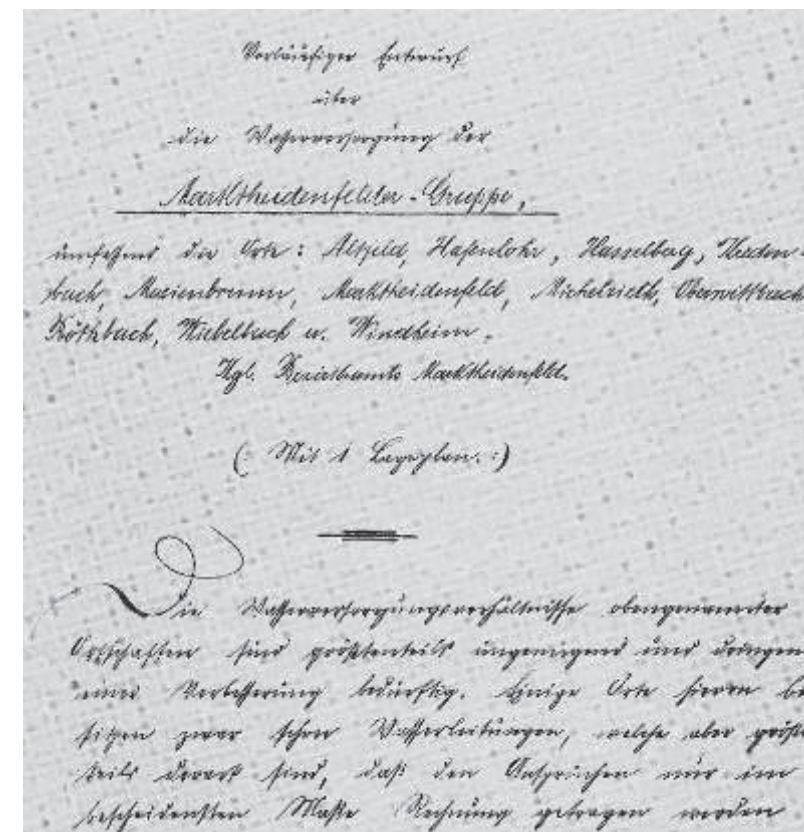 Vorläufiger Entwurf
über
die Wasserversorgung der
Marktheidenfelder-Gruppe,
umfassend die Orte: Altfeld, Hafenlohr, Hasselberg, Heiden-
bach, Marienbrunn, Marktheidenfeld, Michelrieth, Oberwittbach
Röttbach, Wiebelbach u. Windheim.
Kgl. Bezirksamts Marktheidenfeld.
(: Mit 1 Lageplan. :)
Die Wasserversorgungsverhältnisse obengenannter
Ortschaften sind größtenteils ungenügend und dringen
einer Verbesserung bedürftig. Einige Orte hievon be
sitzen zwar schon Wasserleitungen, welche aber größte
teils derart sind, daß den Ansprüchen nur im
bescheidensten Maße Rechnung getragen werden